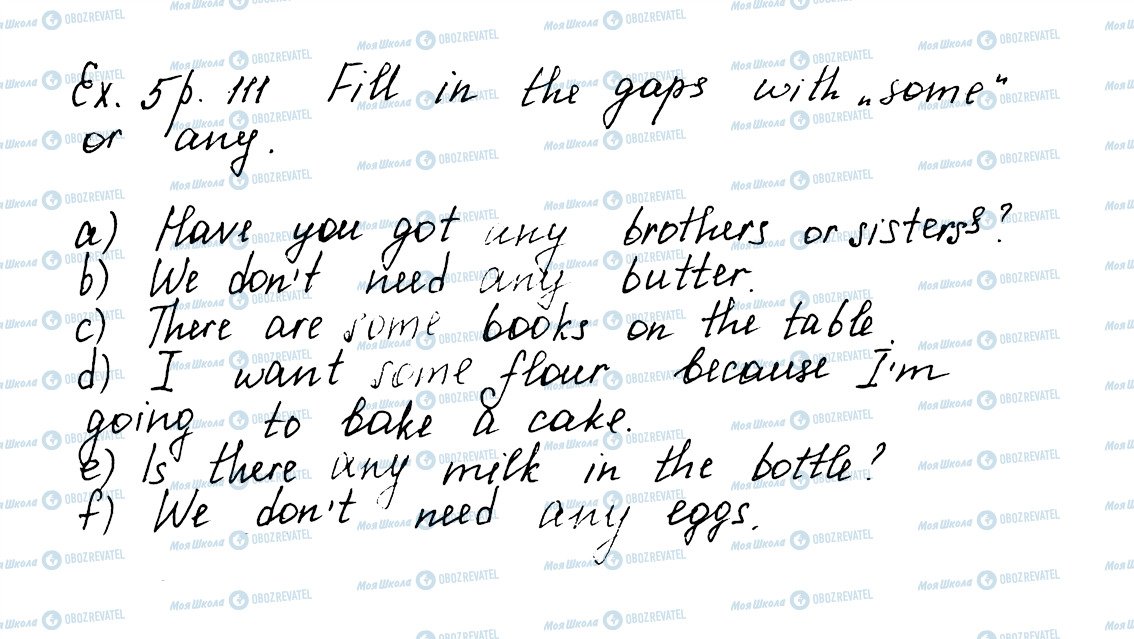 Ex. 5 p. 111 Fill in the gaps with „some"
or any.
a) Have you got any brothers or sisters?
b) We don't need any butter.
c) There are some books on the table.
d) I want some flour because I'm
going to bake a cake.
e) Is there any milk in the bottle?
f) We don't need any eggs.
Моя Школа OBOZREVATEL